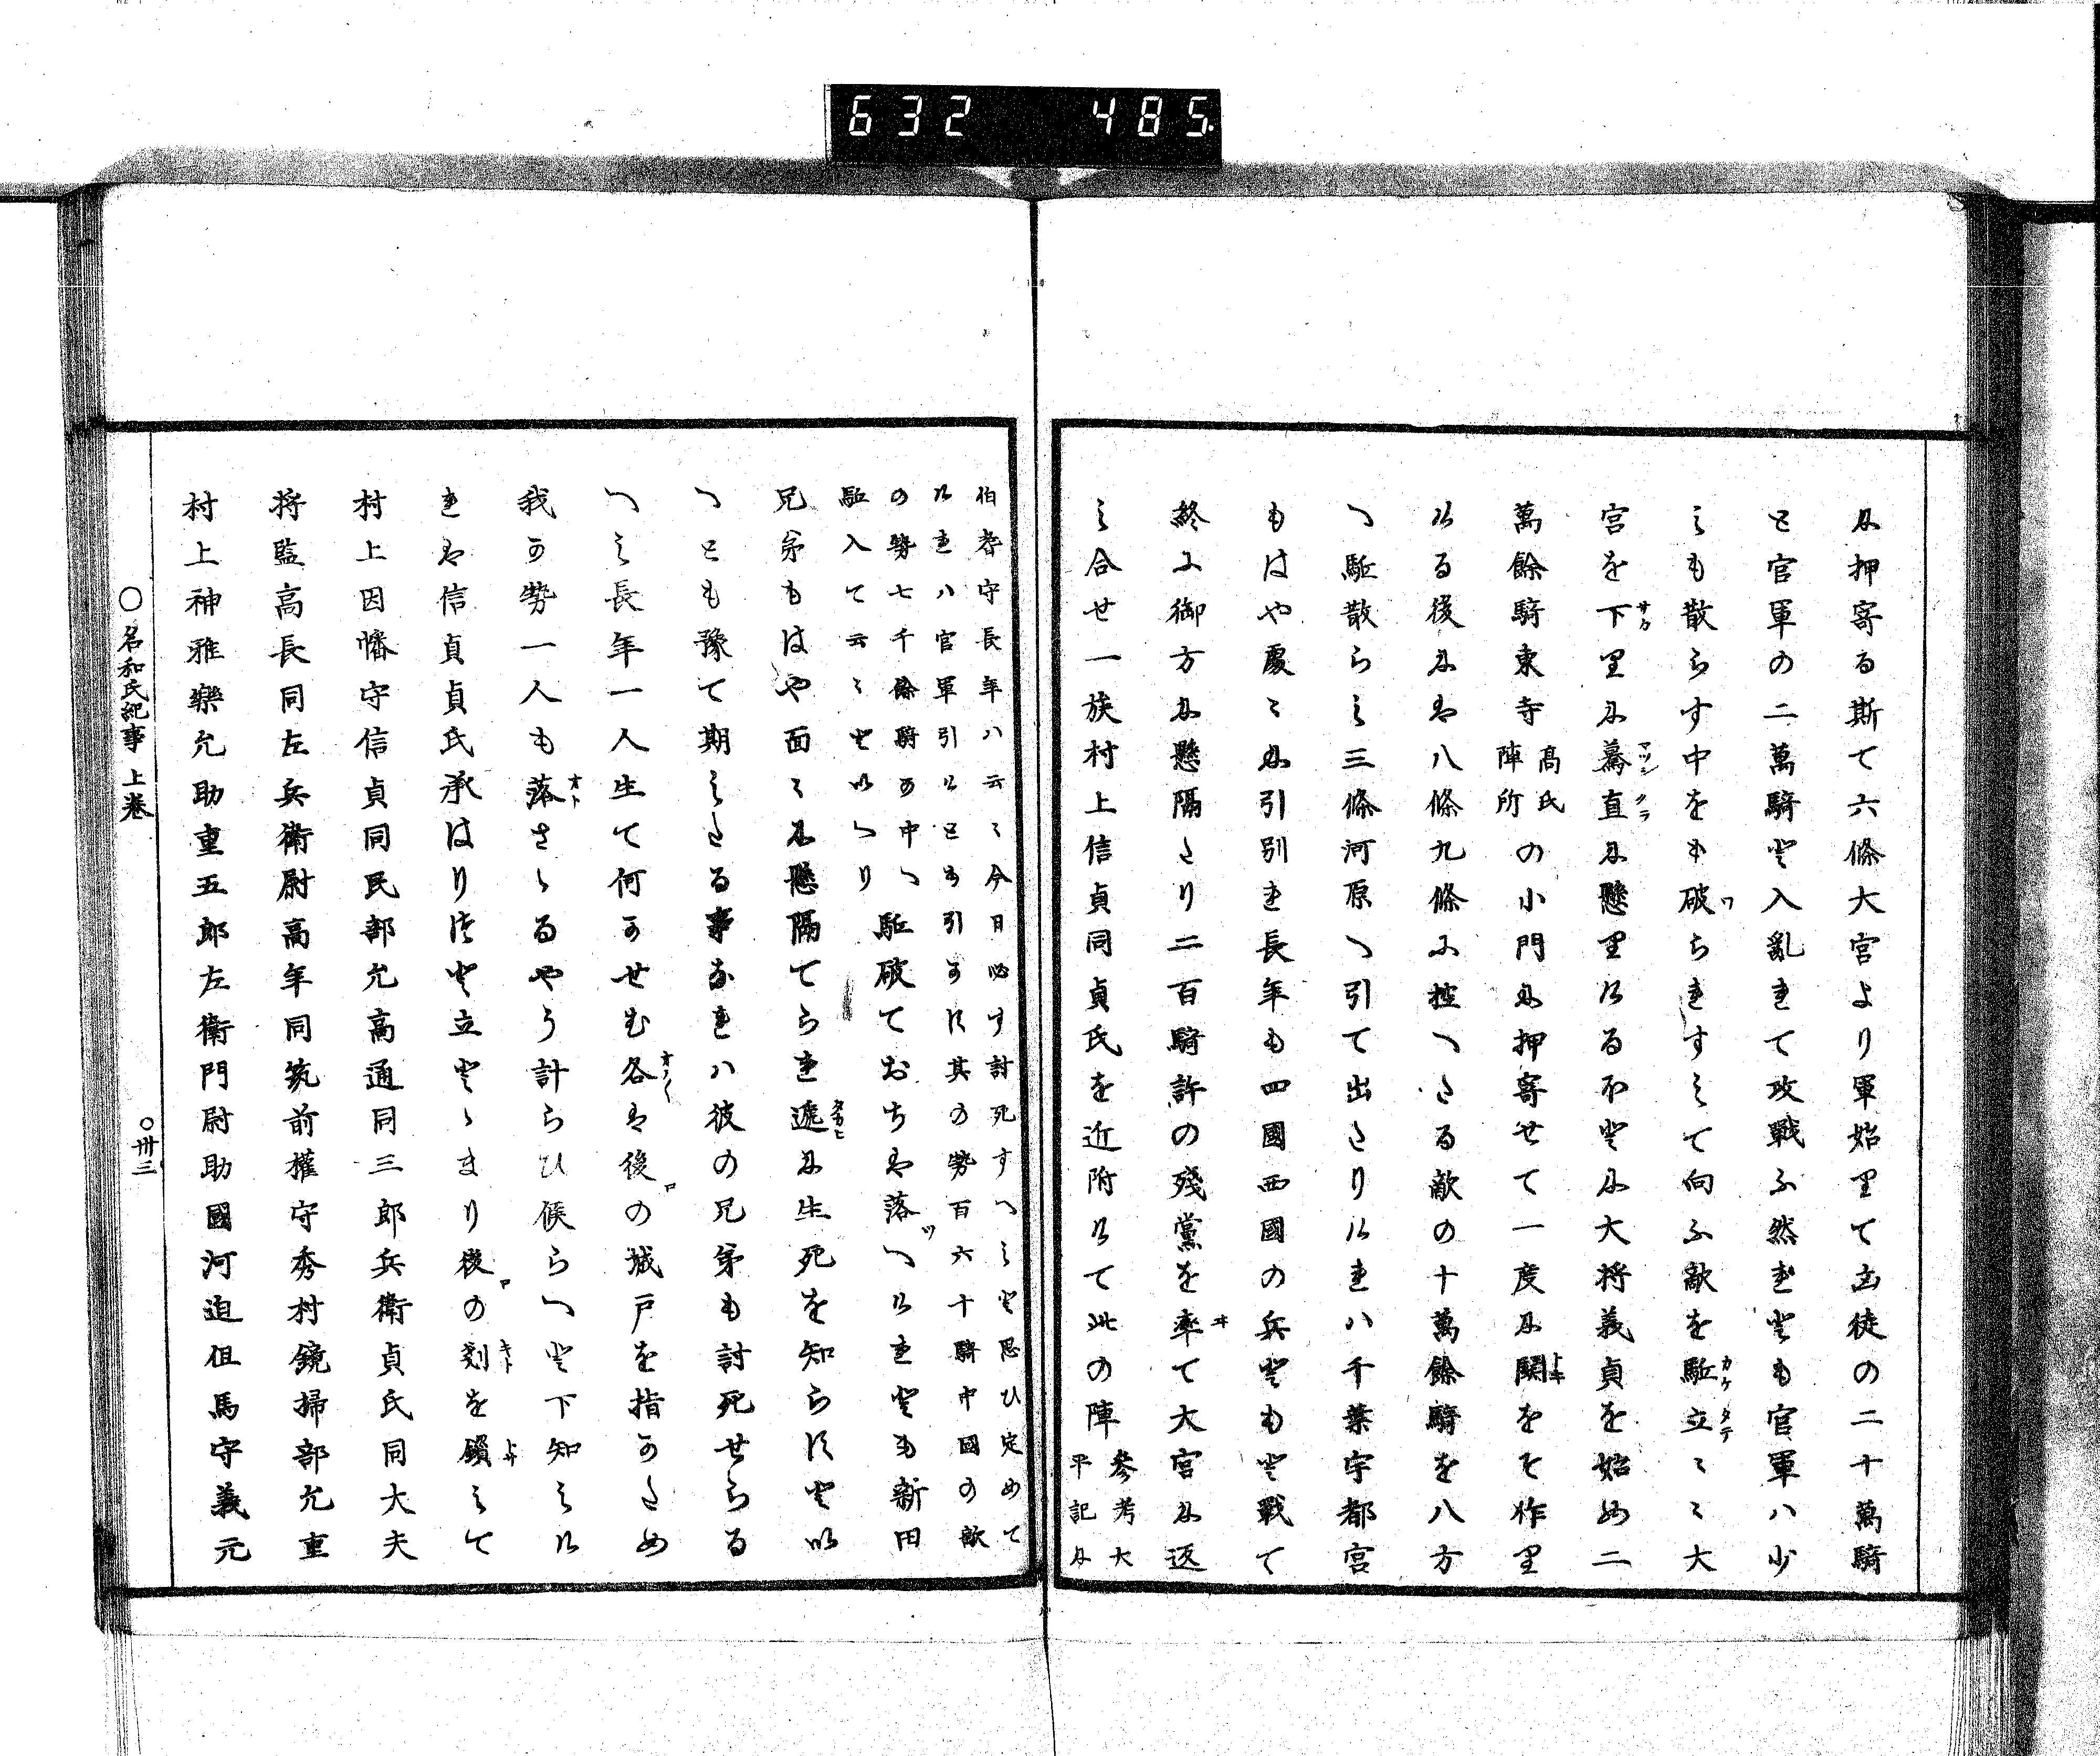 632 485
に押寄る斯て六條大宮より軍始里て凶徒の二十萬騎
と官軍の二萬騎と入亂れて攻戰ふ然れとも官軍ハ少
しも散らす中をも破られすして向ふ敵を駈立〻大
宮を下里に驀直に懸里ける不とに大将義貞を始め二
萬餘騎東寺高氏陣所の小門に押寄せて一度に鬨をそ作里
ける後には八條九條に控へたる敵の十萬餘騎を八方
へ駈散らし三條河原へ引て出たりけれハ千葉宇都宮
もはや處〻に引別れ長年も四國西國の兵ともと戰て
終に御方に懸隔たり二百騎許の殘黨を率て大宮に返
し合せ一族村上信貞同貞氏を近附けて此の陣参考大平記に
伯耆守長年ハ云〻今日必す討死すへしと思ひ定めて
けれハ官軍引けとも引かす其の勢百六十騎中國の敵
の勢七千餘騎の中へ
駈入て云〻と以へり
駈破ておちは落へけれとも新田
兄弟もはや面〻に懸隔てられ遮に生死を知らすと以
へとも豫て期したる事なれハ彼の兄弟も討死せらる
へし長年一人生て何かせむ各は後の城戸を指かため
我か勢一人も落さゝるやう計らひ候らへと下知しけ
れは信貞貞氏承はりけと立とゝまり後の剡を鎖して
村上因幡守信貞同民部允高通同三郎兵衛貞氏同大夫
将監高長同左兵衛尉高年同筑前權守秀村鏡掃部允重
村上神雅樂允助重五郎左衛門尉助國河迫伹馬守義元
○名和氏紀事 上巻 ○卅三